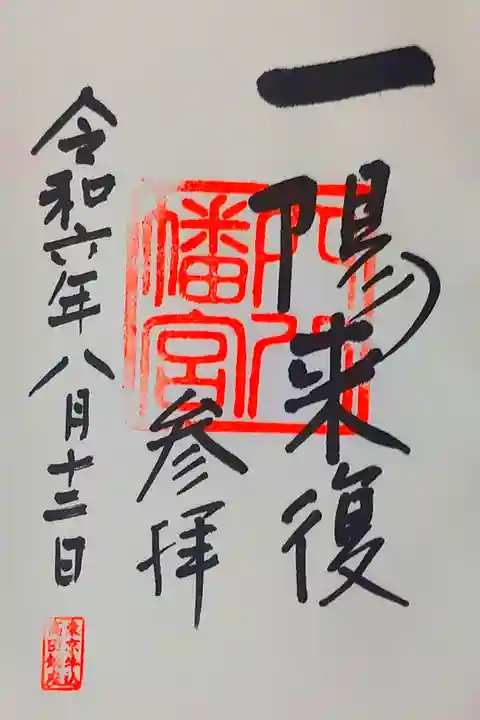 一陽来復
穴八幡宮
参拝
令和六年八月十三日
東京牛込
高田鎮座